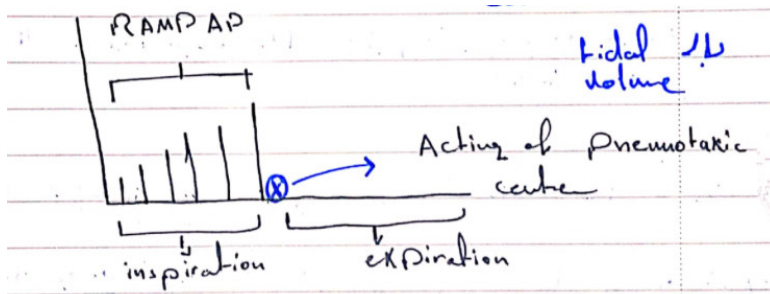 RAMP AP
tidal
volume
Acting of pneumotaxic
centre
inspiration
expiration